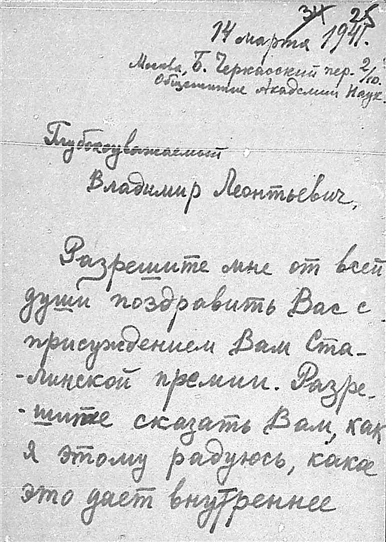 34 25
14 марта 1941.
Москва, Б. Черкасский пер. 2/10.
Общежитие Академии Наук.
Глубокоуважаемый
Владимир Леонтьевич,
Разрешите мне от всей
души поздравить Вас с
присуждением Вам Ста-
-линской премии. Разре-
-шите сказать Вам, как
я этому радуюсь, какое
это дает внутреннее